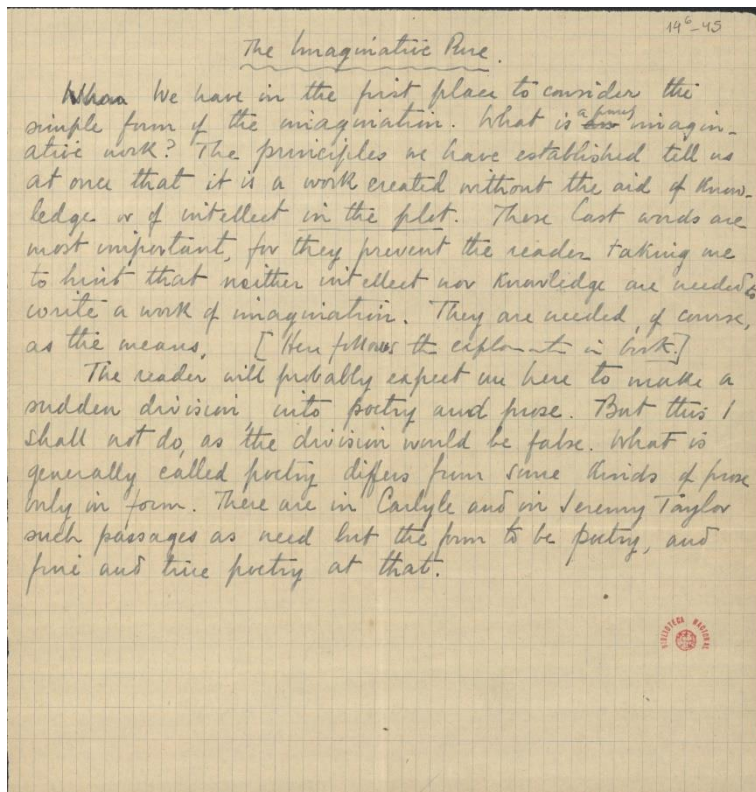 14⁶-45
The Imaginative Pure.
We have in the first place to consider the
simple form of the imagination. What is a purely imagin-
ative work? The principles we have established tell us
at once that it is a work created without the aid of know-
ledge or of intellect in the plot. These last words are
most important, for they prevent the reader taking me
to hint that neither intellect nor knowledge are needed to
write a work of imagination. They are needed, of course,
as the means. [Here follows the in book.]
The reader will probably expect me here to make a
sudden division, into poetry and prose. But this I
shall not do, as the division would be false. What is
generally called poetry differs from some kinds of prose
only in form. There are in Carlyle and in Jeremy Taylor
such passages as need but the form to be poetry, and
fine and true poetry at that.
BIBLIOTECA NACIONAL